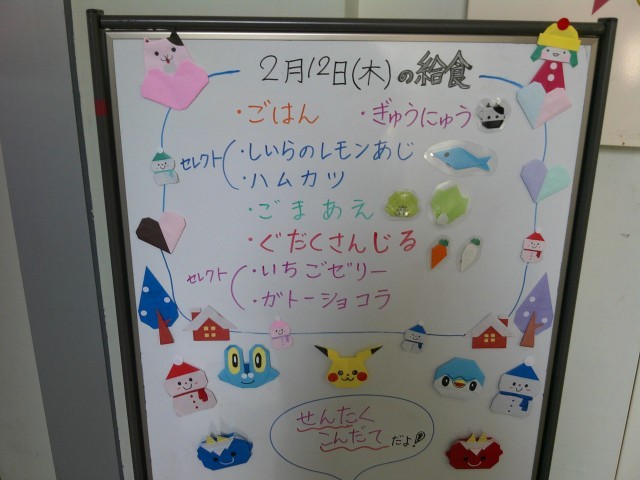 2月12日(木)の給食
・ごはん ・ぎゅうにゅう
セレクト
・しいらのレモンあじ
・ハムカツ
・ごまあえ
・ぐだくさんじる
セレクト
・いちごゼリー
・ガトーショコラ
せんたく
こんだてだよ!